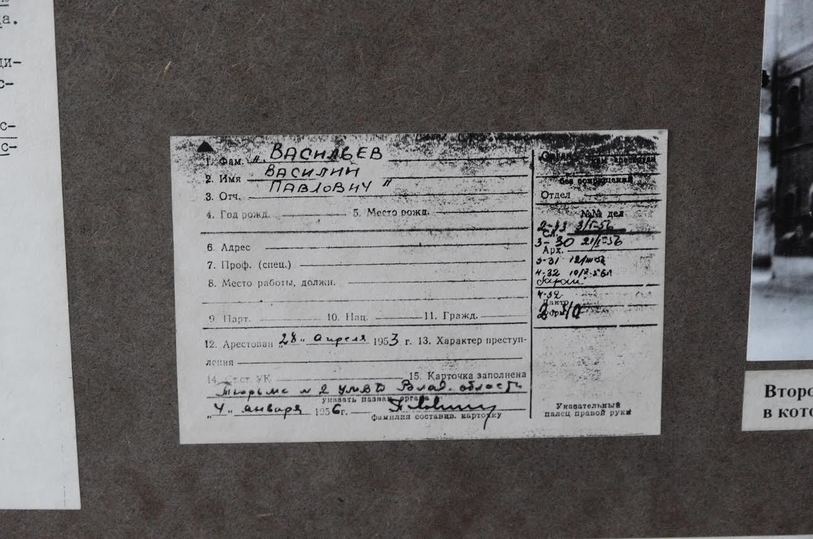 да.
ди-
с-
с-
с-
1. Фам. „ ВАСИЛЬЕВ
2. Имя ВАСИЛИЙ
3. Отч. ПАВЛОВИЧ "
4. Год рожд. 5. Место рожд.
6. Адрес
7. Проф. (спец.)
8. Место работы, должн.
9. Парт. 10. Нац. 11. Гражд.
12. Арестован „28„ апреля 1953 г. 13. Характер преступ-
ления
14. ст УК 15. Карточка заполнена
Тюрьма № 2 УМВД Влад. области
указать назван. орга
„4„ января 1956 г.
фамилия составив. карточку
без сокращений
Отдел
№№ дел
2-43 3/I-56
3-30 21/I-56
Арх.
3-31
4-32
4-32
Указательный
палец правой руки
Второ
в кото